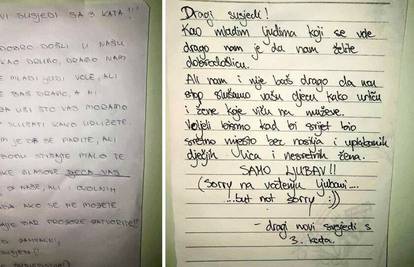 VI SUSJEDI SA 3 KATA !!
DOBRO DOŠLI U NAŠU
KAO DRUGO, DRAGO NAM
MLADI LJUDI VOLE, ALI
BAŠ DRAGO, A ALI
ŠTO VAS MORAMO
SLUŠATI KAKO
PAZITE, ALI
MALO TE
GLASOVE DJECA VAS
NAŠE, ALI
AKO SE NE MOŽETE
BAR PROZORE ZATVORITE!!
Dragi susjedi!
Kao mladim ljudima koji se vole
drago nam je da nam želite
dobrodošlicu.
Ali nam i nije baš drago da non
stop slušamo vašu djecu kako vrište
i žene koje viču na muževe.
Voljeli bismo kad bi svijet bio
sretno mjesto bez nasilja i uplakanih
dječjih lica i nesretnih žena.
SAMO LJUBAV!!
(Sorry na vođenju ljubavi....
....but not sorry :))
- dragi novi susjedi s
3. kata.